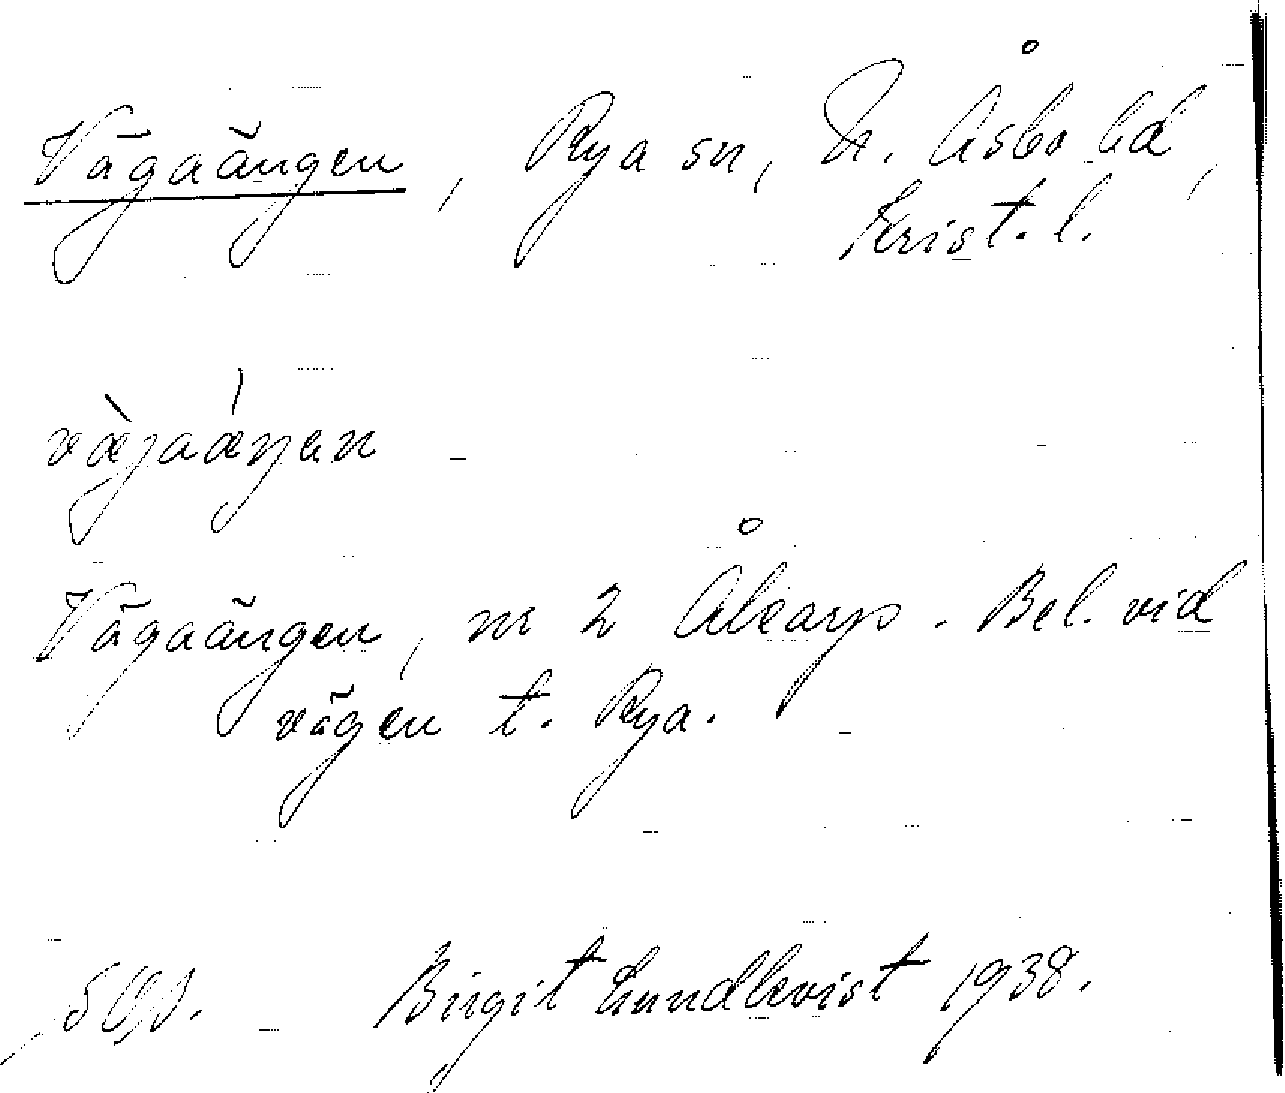 Vägaängen, Rya sn, N. Åsbo hd,
Krist. l.
væ̀jaǽŋen
Vägaängen, nr 2 Åkarp. Bel. vid
vägen t. Rya.
Birgit Lundkvist 1938.